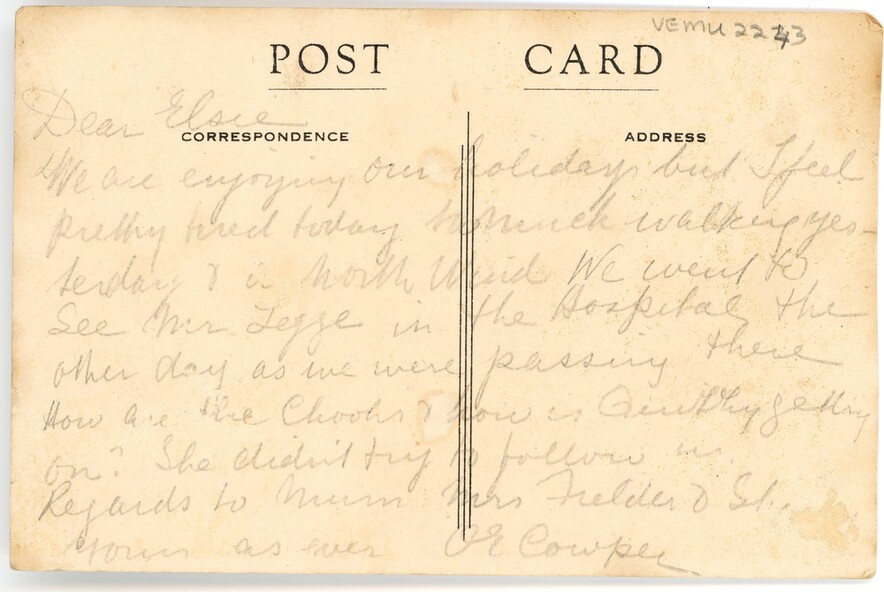 VEMU 2243
POST CARD
Dear Elsie
CORRESPONDENCE ADDRESS
We are enjoying our holidays but I feel
pretty tired today to much walking yes-
terday & in North Wind We went to
See Mr Legge in the Hospital the
other day as we were passing there
How are the Chooks & how is getting
on? She didn't try to follow us.
Regards to Mum Mrs Fielder &
yours as ever Cowper